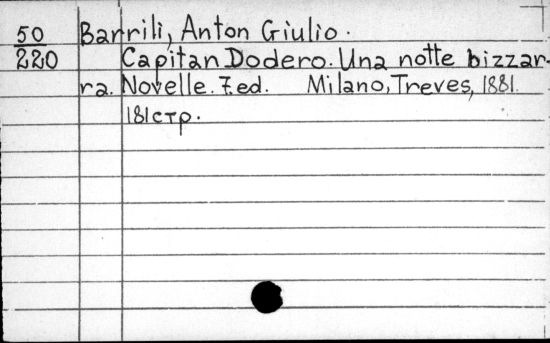 50 Barrili, Anton Giulio.
220 Capitan Dodero. Una notte bizzar-
ra. Novelle. 7.ed. Milano, Treves, 1881.
181стр.